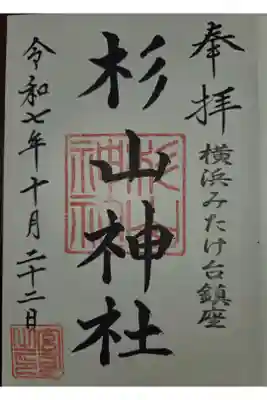 奉拝
横浜みたけ台鎮座
杉山神社
令和七年十月二十二日
杉山神社